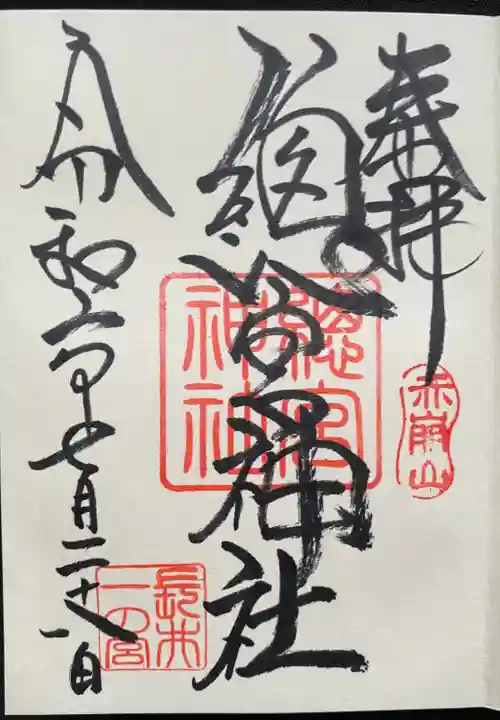 奉拝
赤崩山
總宮神社
總宮神社
長井一の宮
令和二年七月二十一日